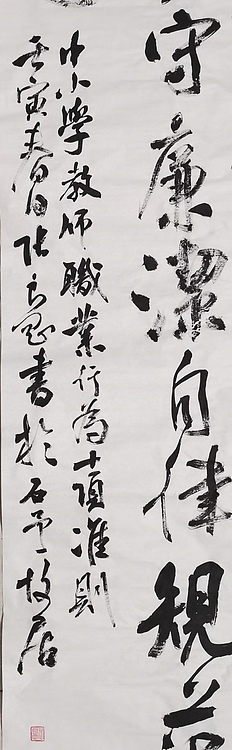 守廉潔自律規范
中小學教師職業行為十項准則
壬寅春日張良勋書於石予故居